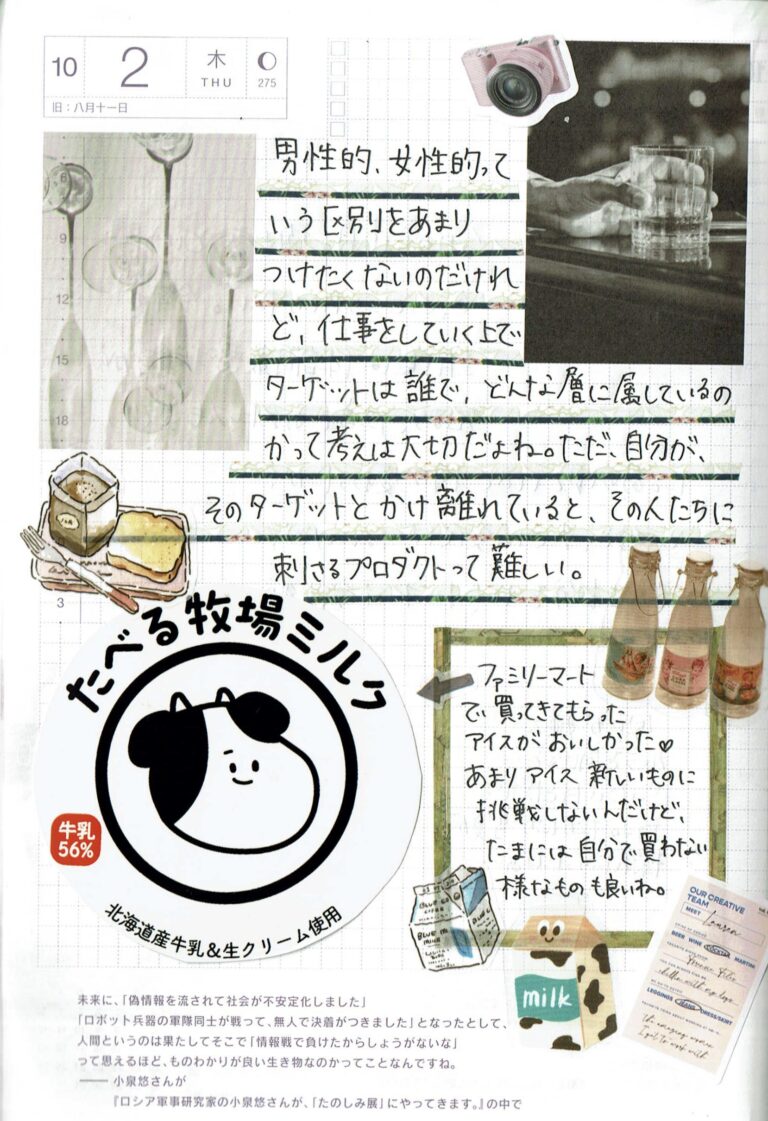 10 2 木 THU 275
旧：八月十一日
男性的、女性的って
いう区別をあまり
つけたくないのだけれ
ど、仕事をしていく上で
ターゲットは誰で、どんな層に属しているの
かって考えは大切だよね。ただ、自分が、
そのターゲットとかけ離れていると、その人たちに
刺さるプロダクトって難しい。
9
12
15
18
3
たべる牧場ミルク
牛乳
56%
北海道産牛乳&生クリーム使用
ファミリーマート
で買ってきてもらった
アイスがおいしかった♥
あまりアイス新しいものに
挑戦しないんだけど、
たまには自分で買わない
様なものも良いね。
milk
OUR CREATIVE
TEAM
MEET
Lauren
BEER WINE COCKTAIL MARTINI
LEGGINGS JEANS DRESS/SKIRT
the amazing women
I get to work with
未来に、「偽情報を流されて社会が不安定化しました」
「ロボット兵器の軍隊同士が戦って、無人で決着がつきました」となったとして、
人間というのは果たしてそこで「情報戦で負けたからしょうがないな」
って思えるほど、ものわかりが良い生き物なのかってことなんですね。
―― 小泉悠さんが
『ロシア軍事研究家の小泉悠さんが、「たのしみ展」にやってきます。』の中で